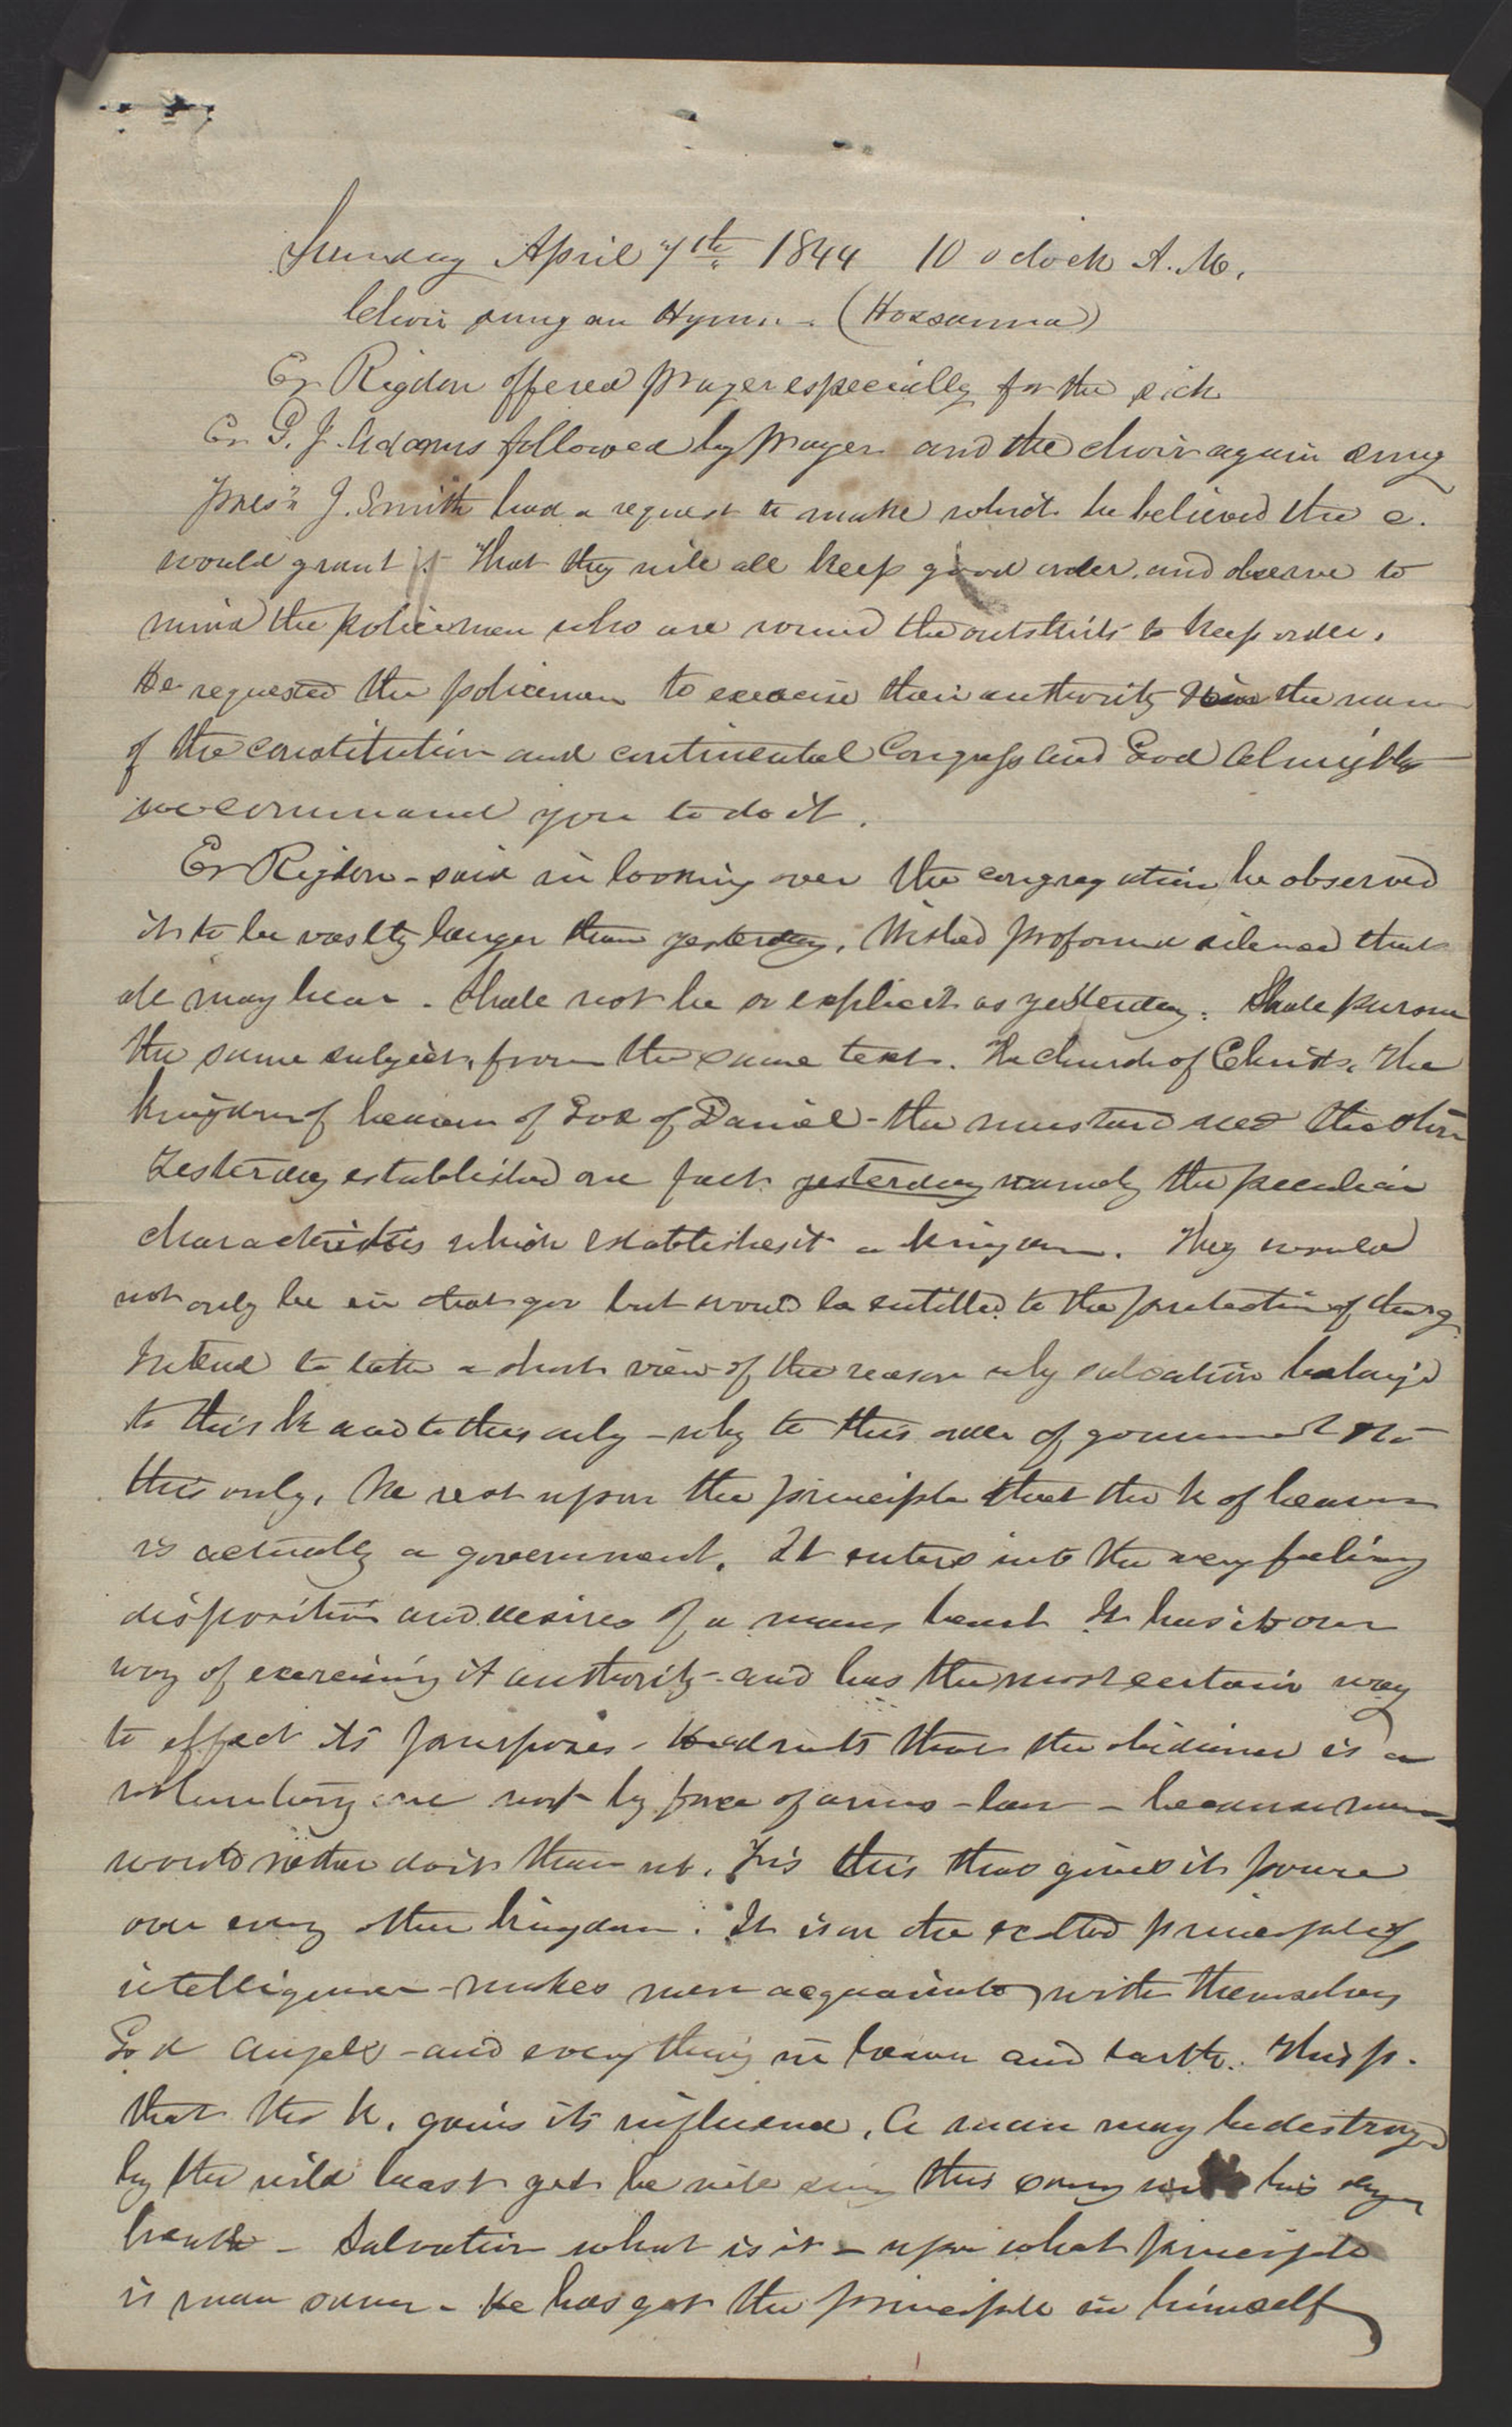 Sunday April 7th 1844 10 o clock A.M.
Choir sung an Hymn. - (Hossanna)
Er Rigdon offered prayer especially for the sick
Er G. J. Adams followed by prayer and the choir again sung
Prest J. Smith had a request to make which he believed the c.
would grant that they will all keep good order, and observe to
mind the policemen who are round the outskirts to keep order.
He requested the policemen to exercise their authority in the name
of the constitution and continental Congress and God Almighty
we command you to do it.
Er Rigdon - said in looking over the congregation he observed
it to be vastly larger than yesterday. Wished profound silence that
all may hear. Shall not be so explicit as yesterday. Shall pursue
the same subject, from the same text. The church of Christ, the
kingdom of heaven of God of Daniel - the mustard seed
Yesterday established one fact yesterday namely the peculiar
characteristics which establishes it a kingdom. They would
not only be in that gov but would be entitled to the protection of
Intend to take a short view of the reason why salvation belong'd
to this k and to this only - why to this order of government &
this only. He rest upon the principle that the k of heaven
is actually a government. It enters into the very feelings
disposition and desires of a mans heart It has its own
way of exercising it authority - and has the most certain way
to effect its purposes - admits that the obedience is a
voluntary one not by force of arms - law - because men
would rather do it than not. Tis this that gives it power
over every other kingdom. It is on the exalted principle of
intelligence - makes men acquainted with themselves
God Angels - and every thing in heaven and earth. This p.
that the k. gains its influence. A man may be destroyed
by the wild beast yet he will sing this song with his dying
breath - Salvation what is it - upon what principle
is man saved - He has got the principle in himself